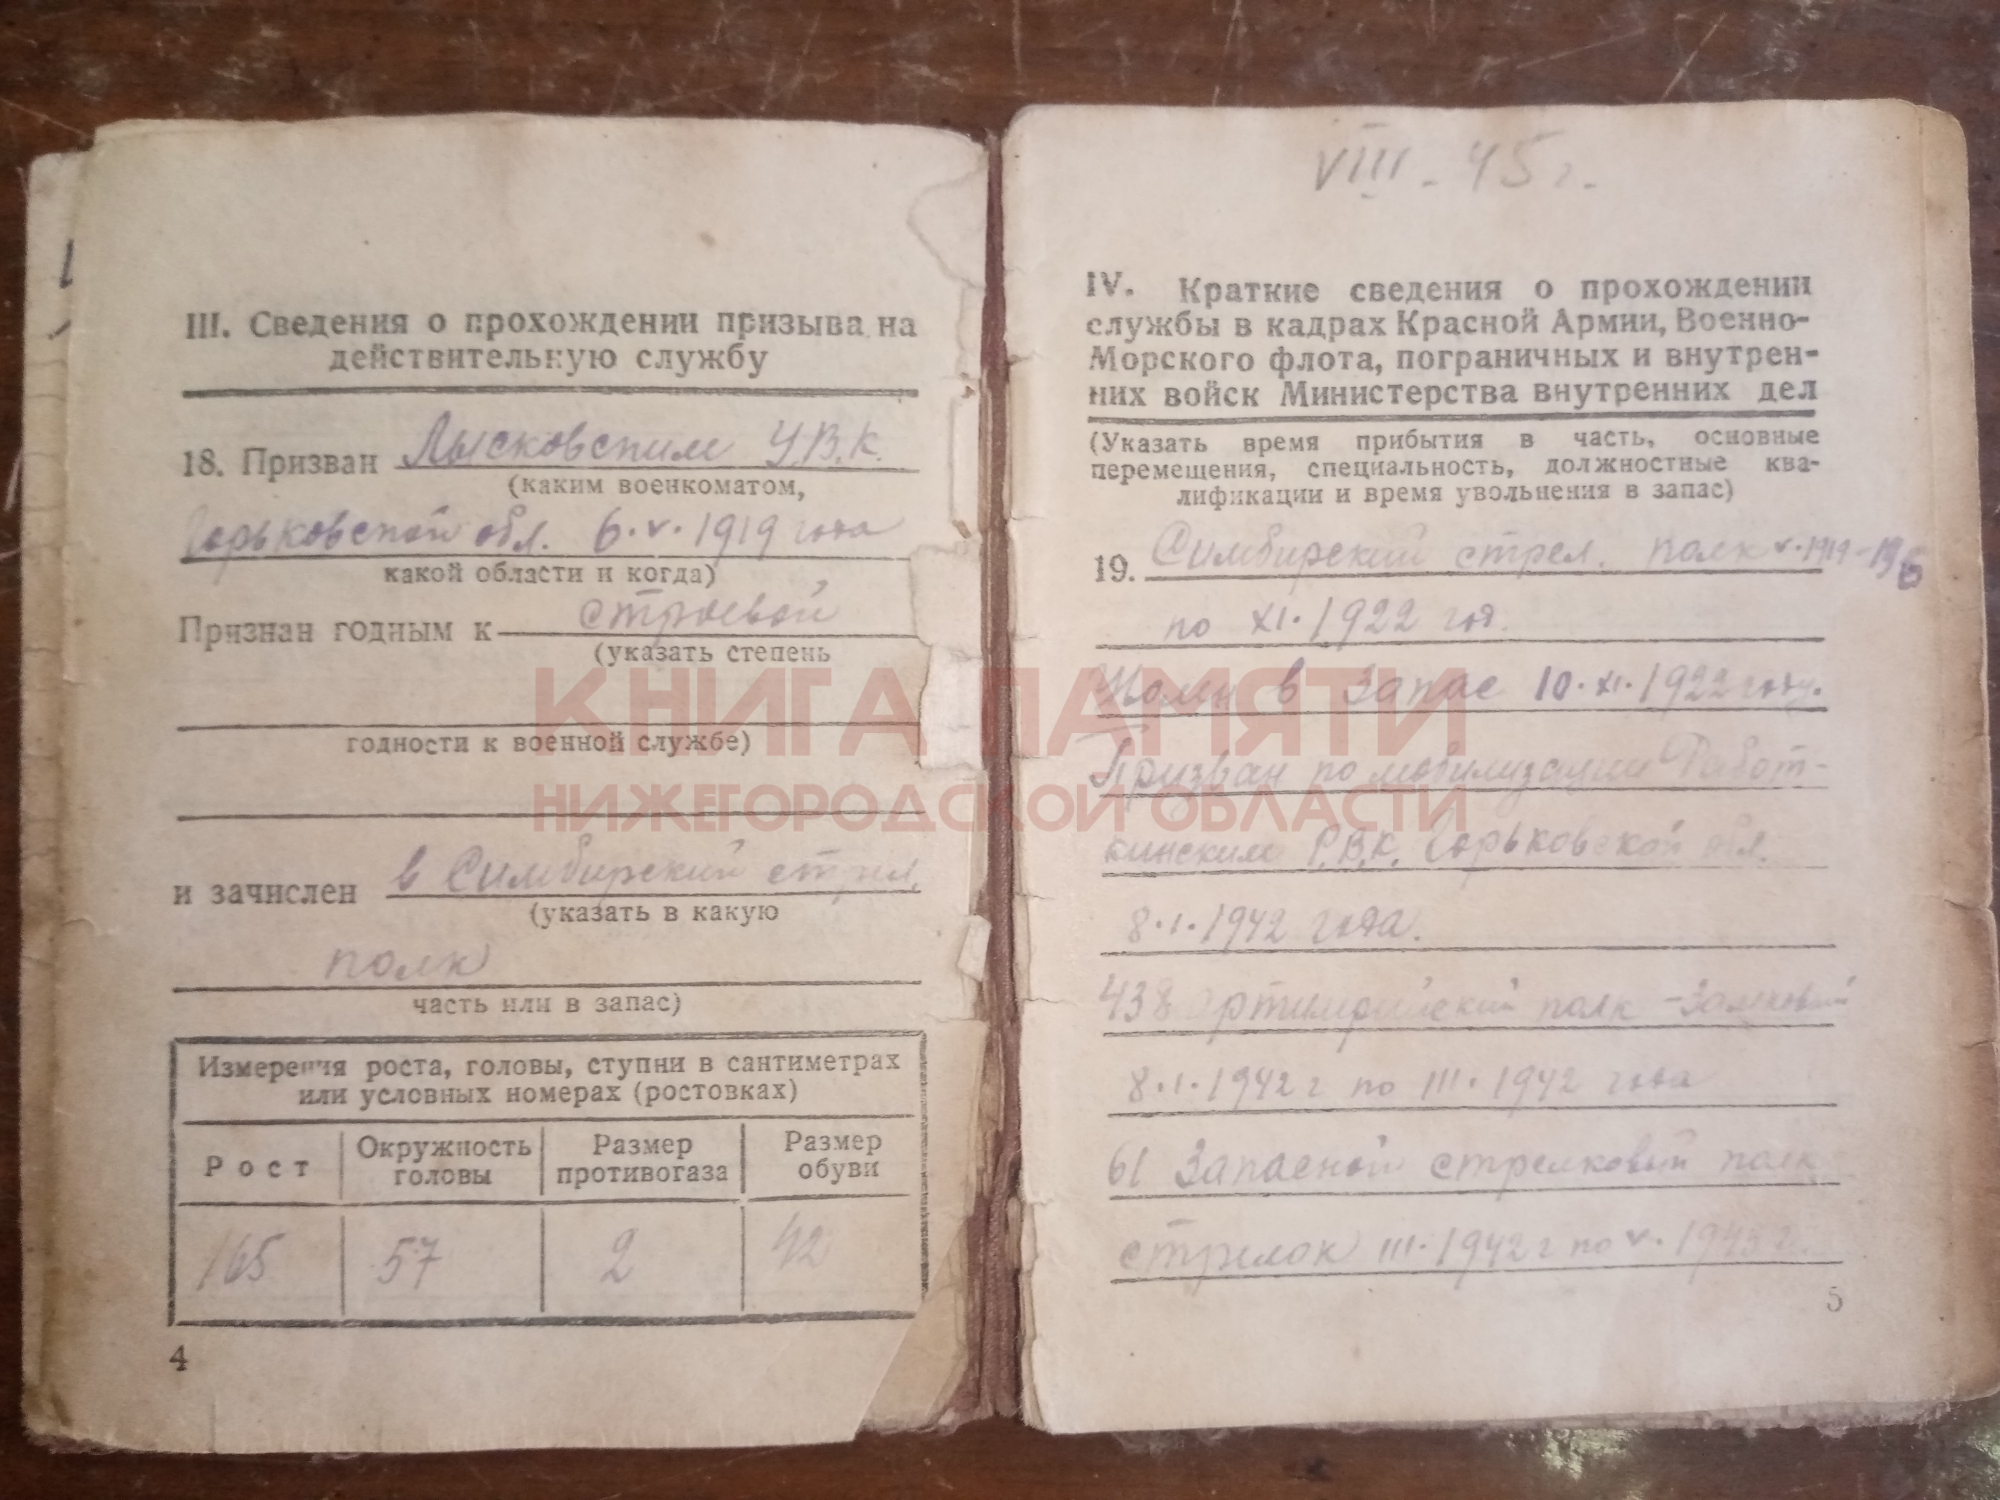 III. Сведения о прохождении призыва на
действительную службу
18. Призван Лысковским У.В.К.
(каким военкоматом,
Горьковской обл. 6.V.1919 года
какой области и когда)
Признан годным к строевой
(указать степень
годности к военной службе)
и зачислен в Симбирский стрел.
(указать в какую
полк
часть или в запас)
Измерения роста, головы, ступни в сантиметрах
или условных номерах (ростовках)
Рост
Окружность головы
Размер противогаза
Размер обуви
165 57 2 42
4
VIII - 45 г.
IV. Краткие сведения о прохождении
службы в кадрах Красной Армии, Военно-
Морского флота, пограничных и внутрен-
них войск Министерства внутренних дел
(Указать время прибытия в часть, основные
перемещения, специальность, должностные ква-
лификации и время увольнения в запас)
19. Симбирский стрел. полк V.1919-
по XI.1922 год.
в запас 10.XI.1922 году.
Призван по мобилизации Работ-
кинским Р.В.К. Горьковской обл.
8.I.1942 года.
438 Артиллерийский полк - Замковый
8.I.1942 г по III.1942 года
61 Запасной стрелковый полк
стрелок III.1942 г по V.1943 г.
5
КНИГА ПАМЯТИ
НИЖЕГОРОДСКОЙ ОБЛАСТИ